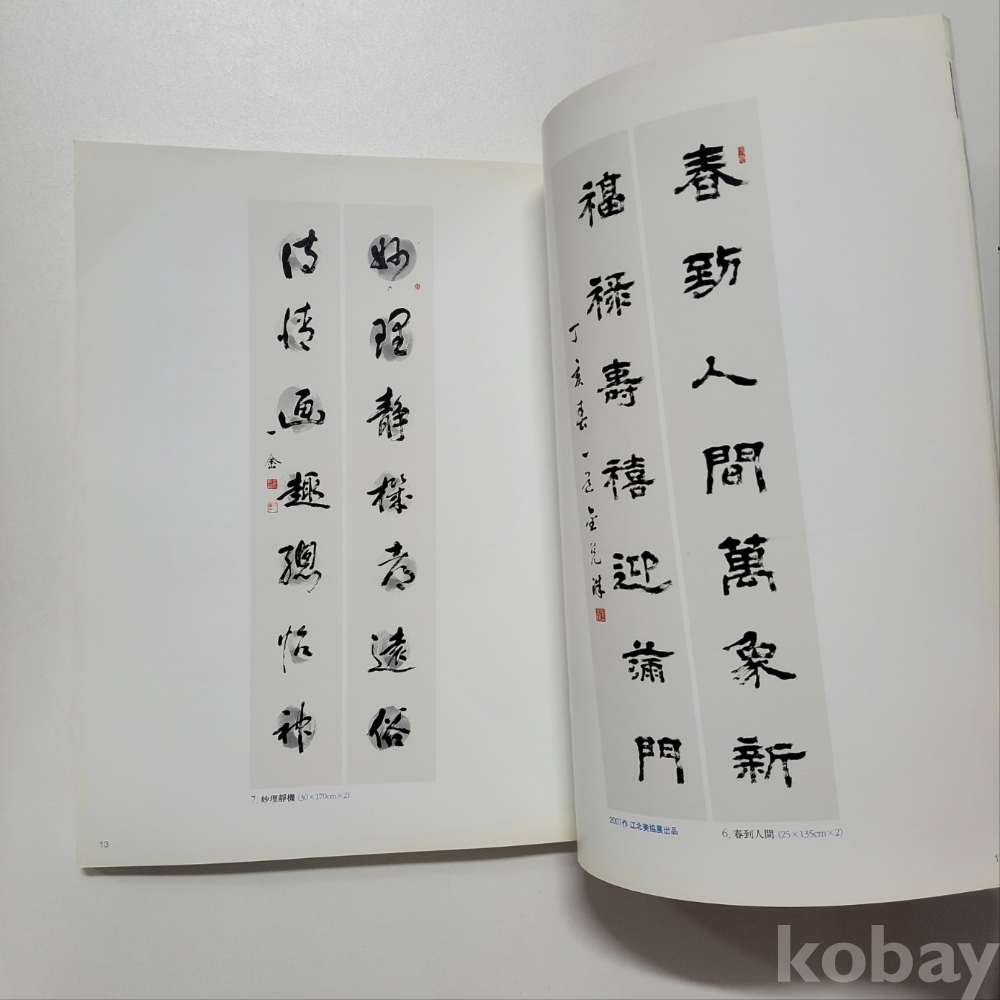 春到人間萬象新
福祿壽禧迎滿門
丁亥春 一 金 洙
2007作 江北美協展出品
6. 春到人間 (25×135cm×2)
妙理靜機都遠俗
詩情画趣總怡神
一金
7. 妙理靜機 (30×170cm×2)
13
kobay